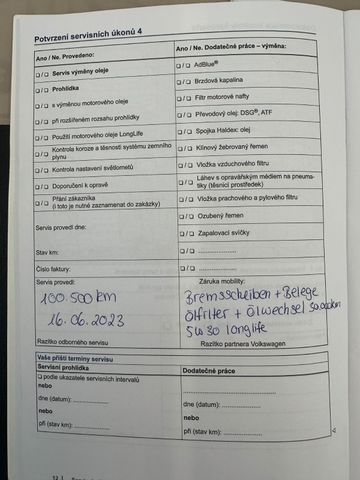 Potvrzení servisních úkonů 4
Ano / Ne. Provedeno:
❑ / ❑ Servis výměny oleje
❑ / ❑ Prohlídka
❑ / ❑ s výměnou motorového oleje
❑ / ❑ při rozšířeném rozsahu prohlídky
❑ / ❑ Použití motorového oleje LongLife
❑ / ❑ Kontrola koroze a těsnosti systému zemního
plynu
❑ / ❑ Kontrola nastavení světlometů
❑ / ❑ Doporučení k opravě
❑ / ❑ Přání zákazníka
(i toto je nutné zaznamenat do zakázky)
Servis provedl dne:
Stav km:
Číslo faktury:
Ano / Ne. Dodatečné práce – výměna:
❑ / ❑ AdBlue®
❑ / ❑ Brzdová kapalina
❑ / ❑ Filtr motorové nafty
❑ / ❑ Převodový olej: DSG®, ATF
❑ / ❑ Spojka Haldex: olej
❑ / ❑ Klínový žebrovaný řemen
❑ / ❑ Vložka vzduchového filtru
❑ / ❑ Láhev s opravářským médiem na pneuma-
tiky (těsnicí prostředek)
❑ / ❑ Vložka prachového a pylového filtru
❑ / ❑ Ozubený řemen
❑ / ❑ Zapalovací svíčky
❑ / ❑ ....................
❑ / ❑ ....................
Servis provedl:
100.500 km
16.06.2023
Razítko odborného servisu
Záruka mobility:
Bremsscheiben + Belege
Ölfilter + Ölwechsel
5w30 longlife
Razítko partnera Volkswagen
Vaše příští termíny servisu
Servisní prohlídka
❑ podle ukazatele servisních intervalů
nebo
dne (datum): ....................
nebo
při (stav km): ....................
Dodatečné práce
....................
dne (datum): ....................
nebo
při (stav km): ....................